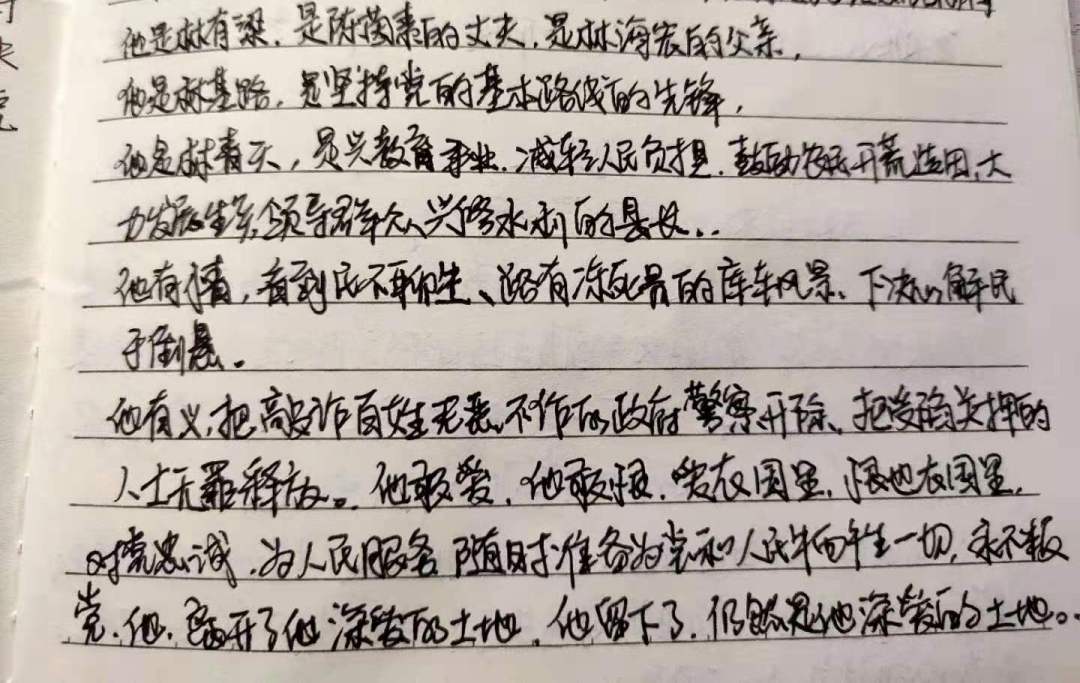 他是林有梁,是陈茵素的丈夫,是林海宏的父亲,
他是林基路,是坚持党的基本路线的先锋,
他是林青天,是兴教育事业、减轻人民负担、鼓励农民开荒造田、大
力发展生产、领导群众兴修水利的县长..
他有情,看到民不聊生、路有冻死骨的库车风景、下决心解民
于倒悬。
他有义,把敲诈百姓无恶不作的政府警察开除、把受冤关押的
人士无罪释放。他敢爱,他敢恨,爱在国里,恨也在国里,
对党忠诚,为人民服务,随时准备为党和人民牺牲一切,永不叛
党,他,离开了他深爱的土地,他留下了,仍然是他深爱的土地。